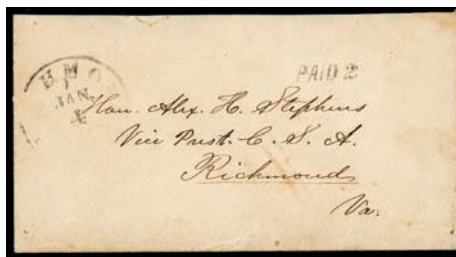 PAID 2
JAN
Hon. Alex. H. Stephens
Vice Prest. C. S. A.
Richmond
Va.